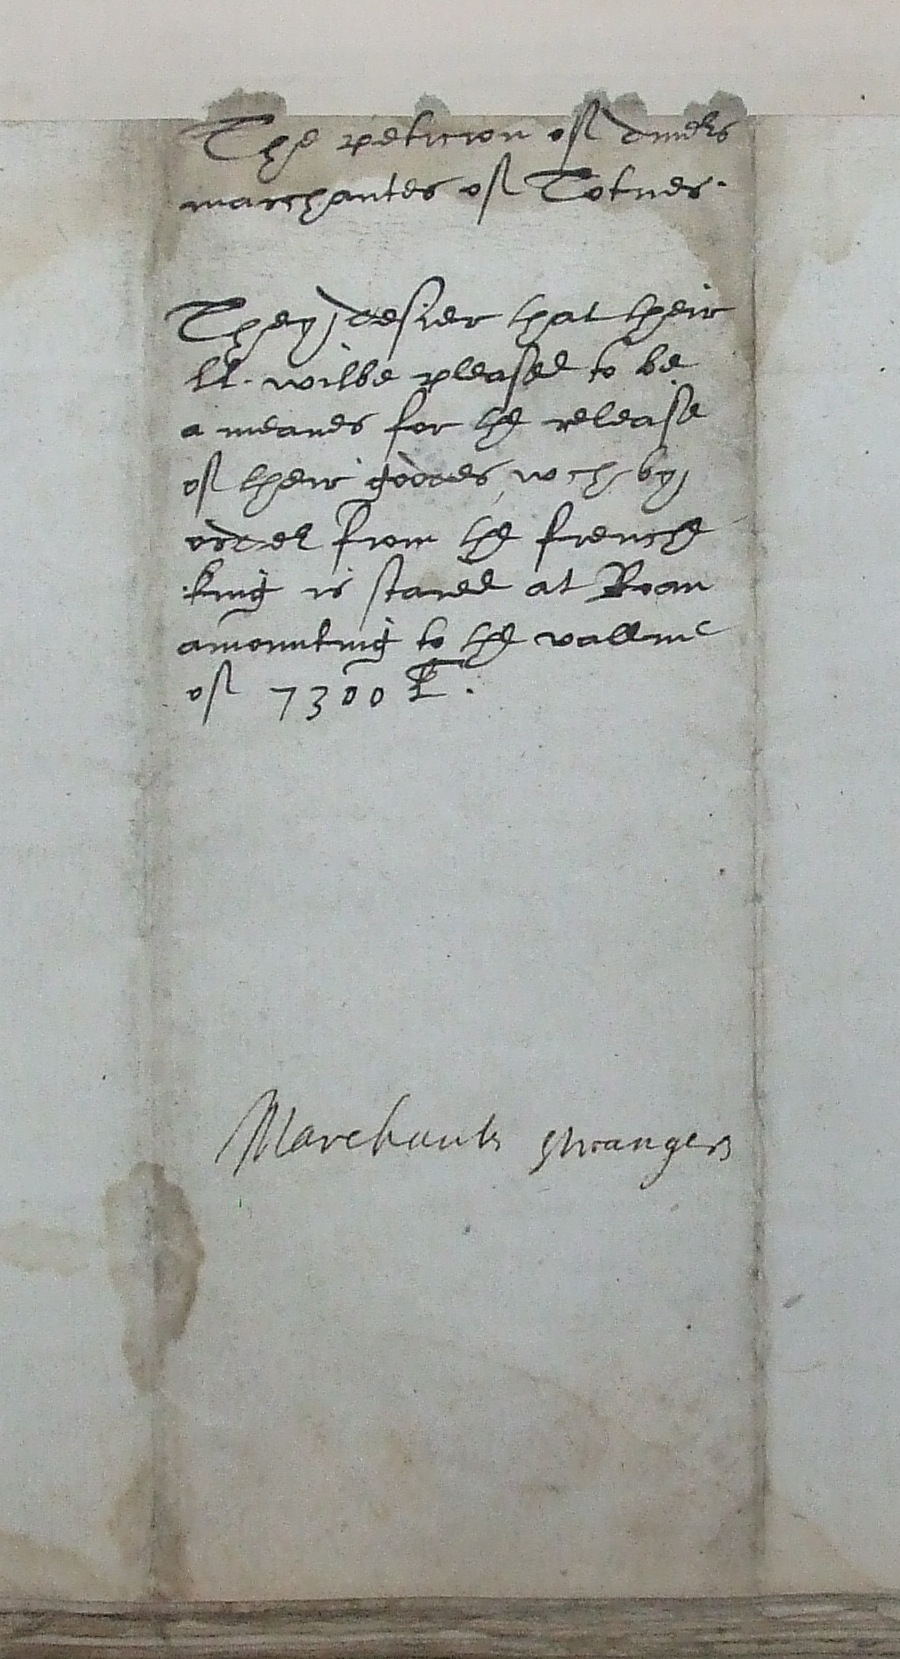 The peticion of divers
marchantes of Totnes.
They desier that their
LL. wilbe pleased to be
a meanes for the release
of their goodes wch by
order from the Frenche
king is staied at Roan
amounting to the vallue
of 7300 ł.
Marchants strangers